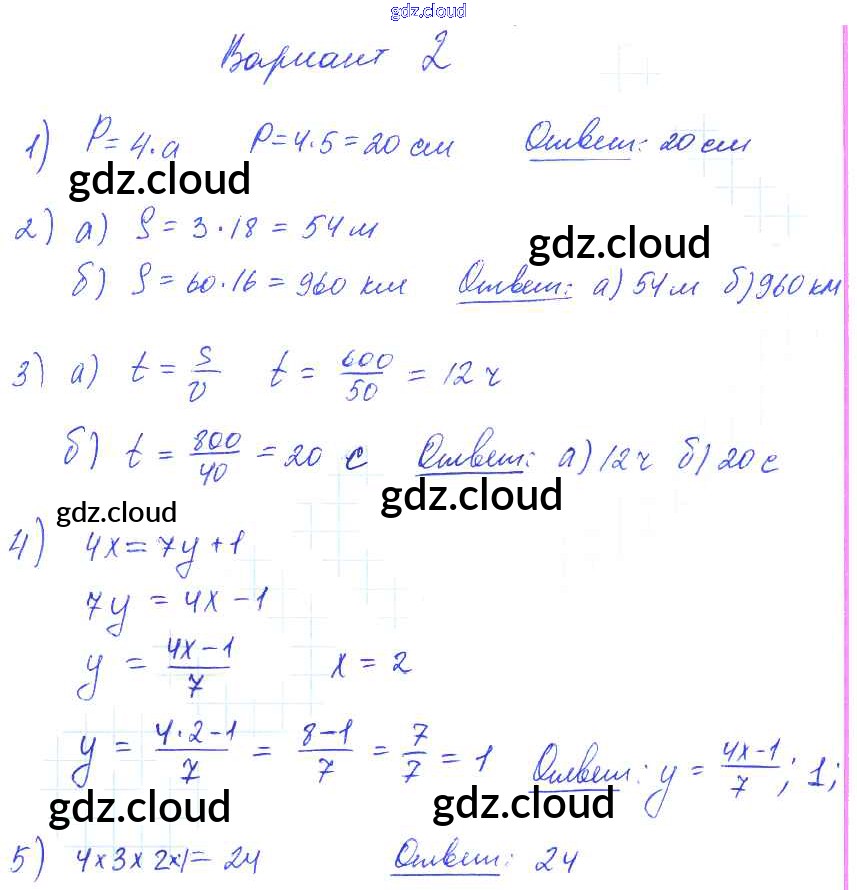 gdz.cloud
Вариант 2
1) P = 4·a P = 4·5 = 20 см Ответ: 20 см
gdz.cloud
2) а) S = 3·18 = 54 м
gdz.cloud
б) S = 60·16 = 960 км Ответ: а) 54 м б) 960 км
3) а) t = S/v t = 600/50 = 12 ч
б) t = 800/40 = 20 с Ответ: а) 12 ч б) 20 с
gdz.cloud
gdz.cloud
4) 4x = 7y + 1
7y = 4x - 1
y = (4x - 1)/7 x = 2
y = (4·2 - 1)/7 = (8 - 1)/7 = 7/7 = 1 Ответ: y = (4x - 1)/7; 1;
gdz.cloud
gdz.cloud
5) 4 x 3 x 2 x 1 = 24 Ответ: 24